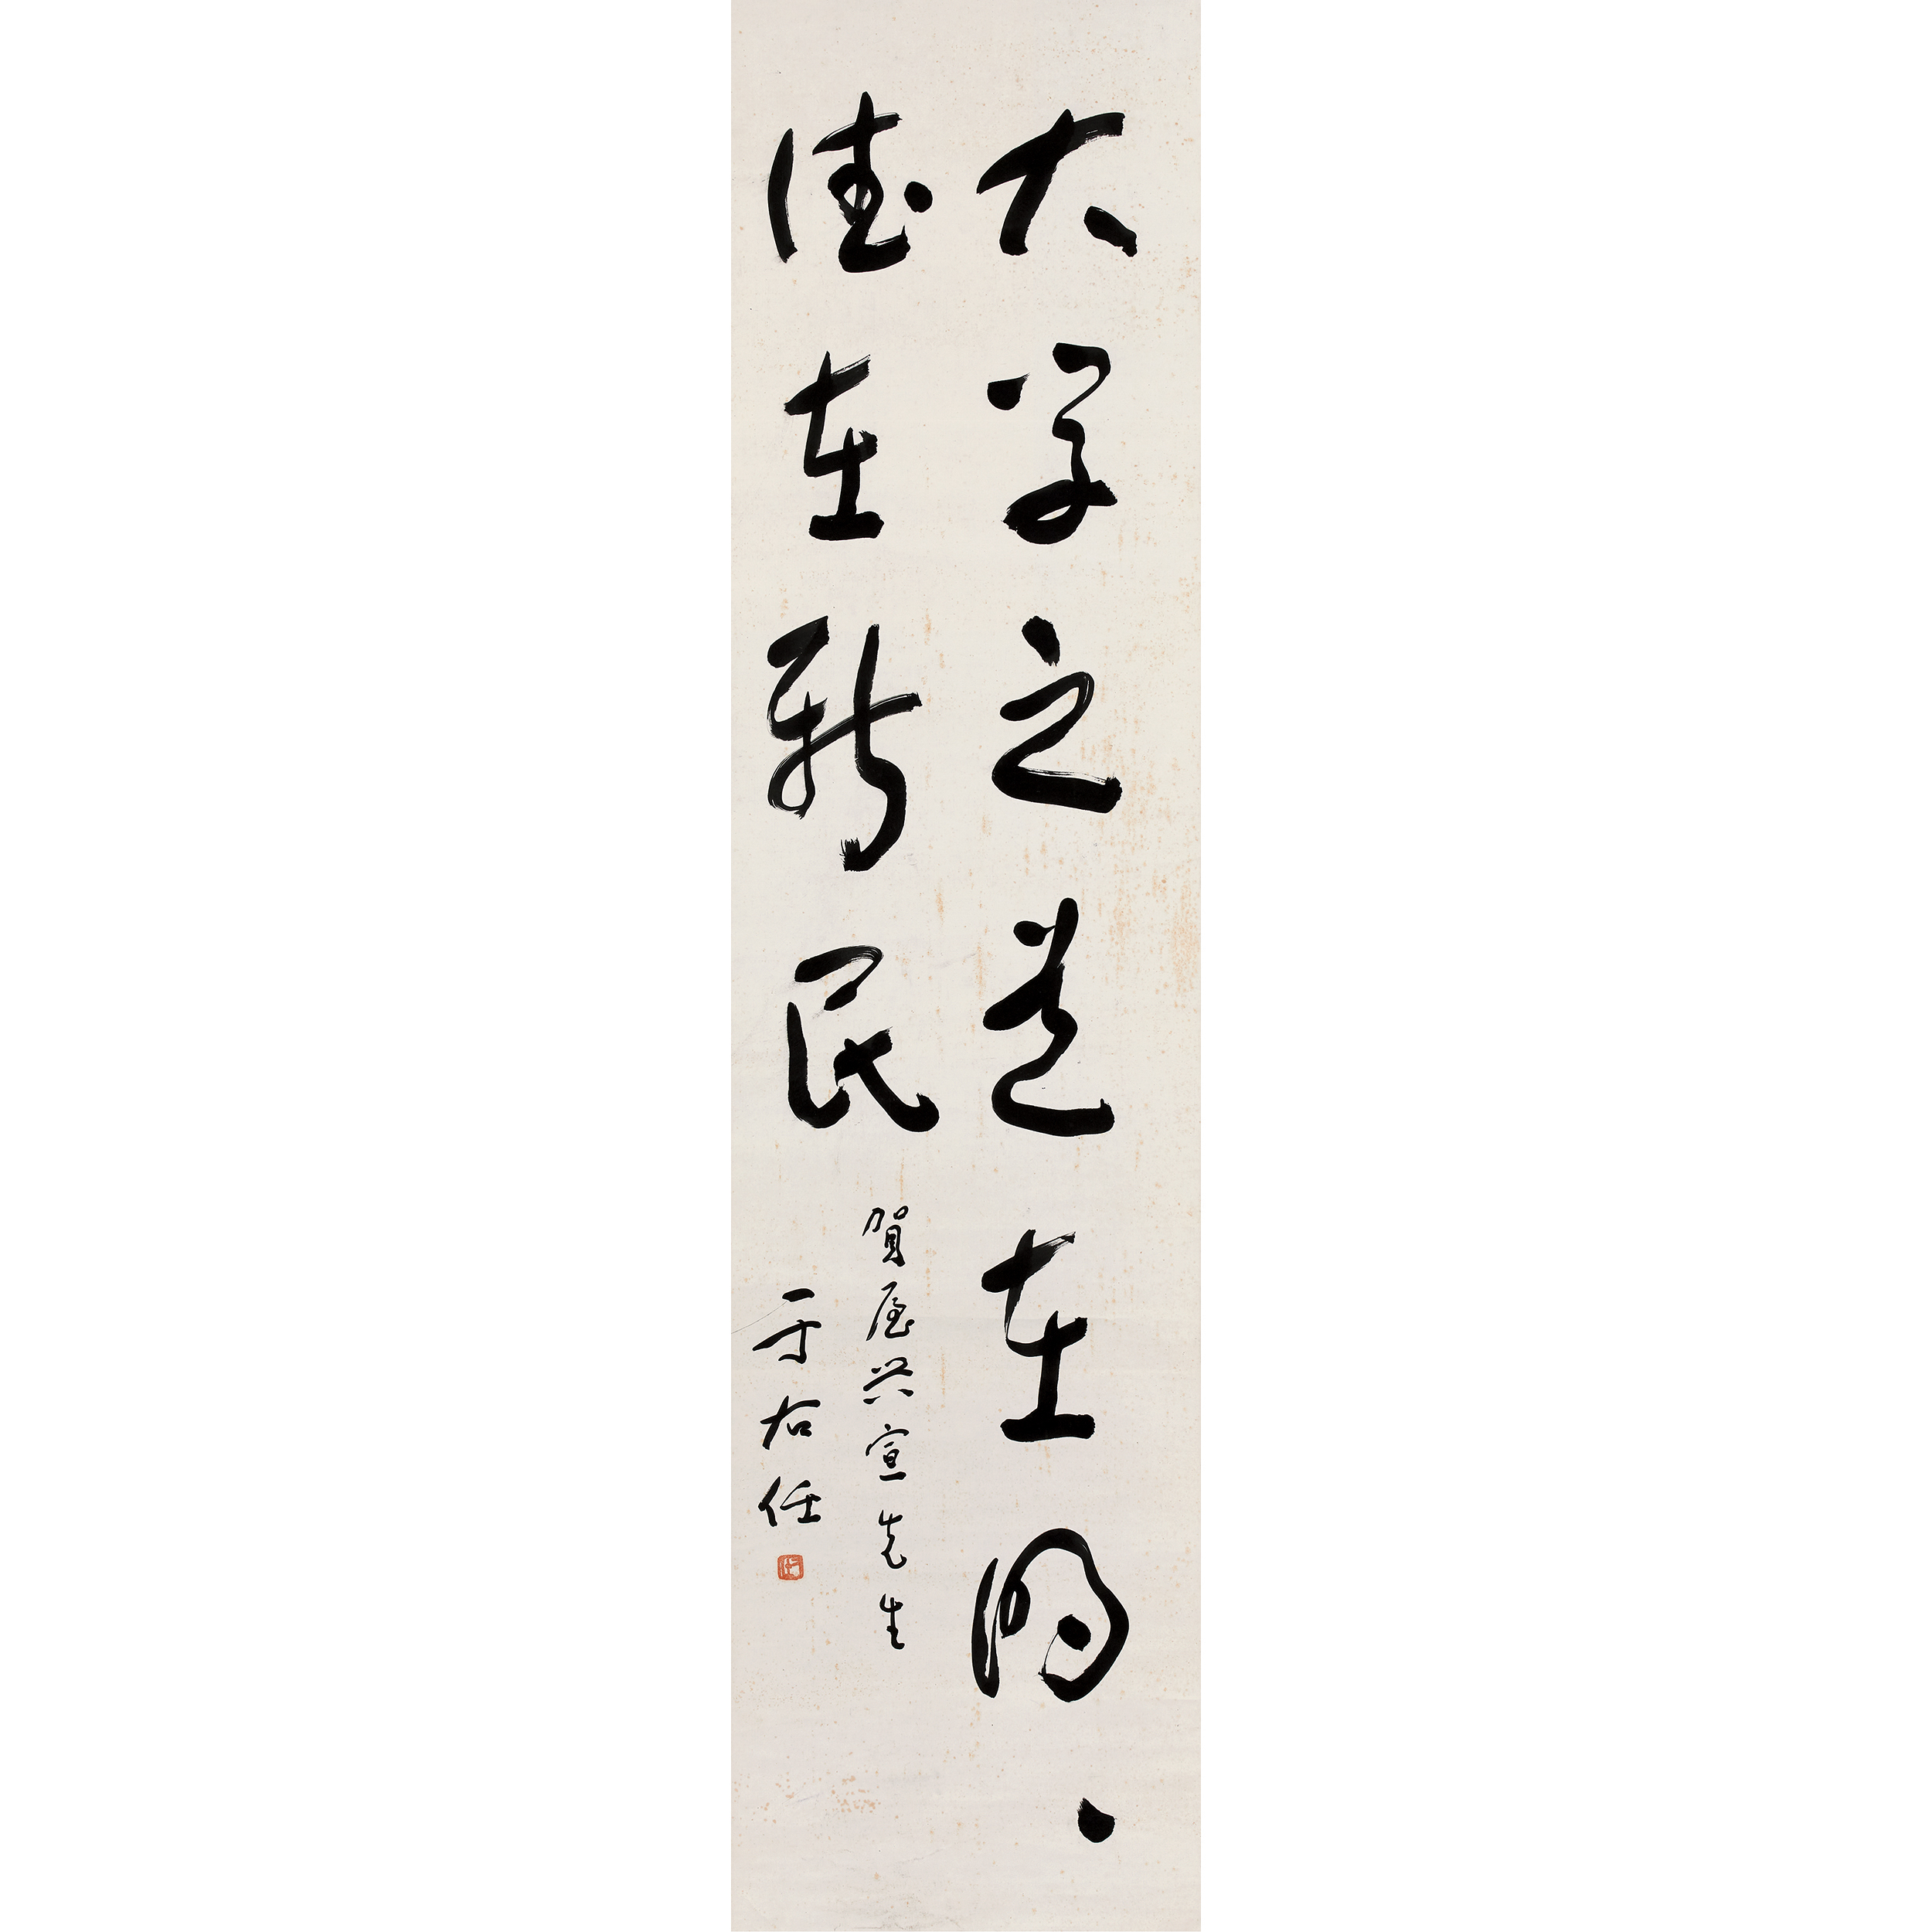 大学之道在明、
德在新民
賀屋興宣先生
于右任